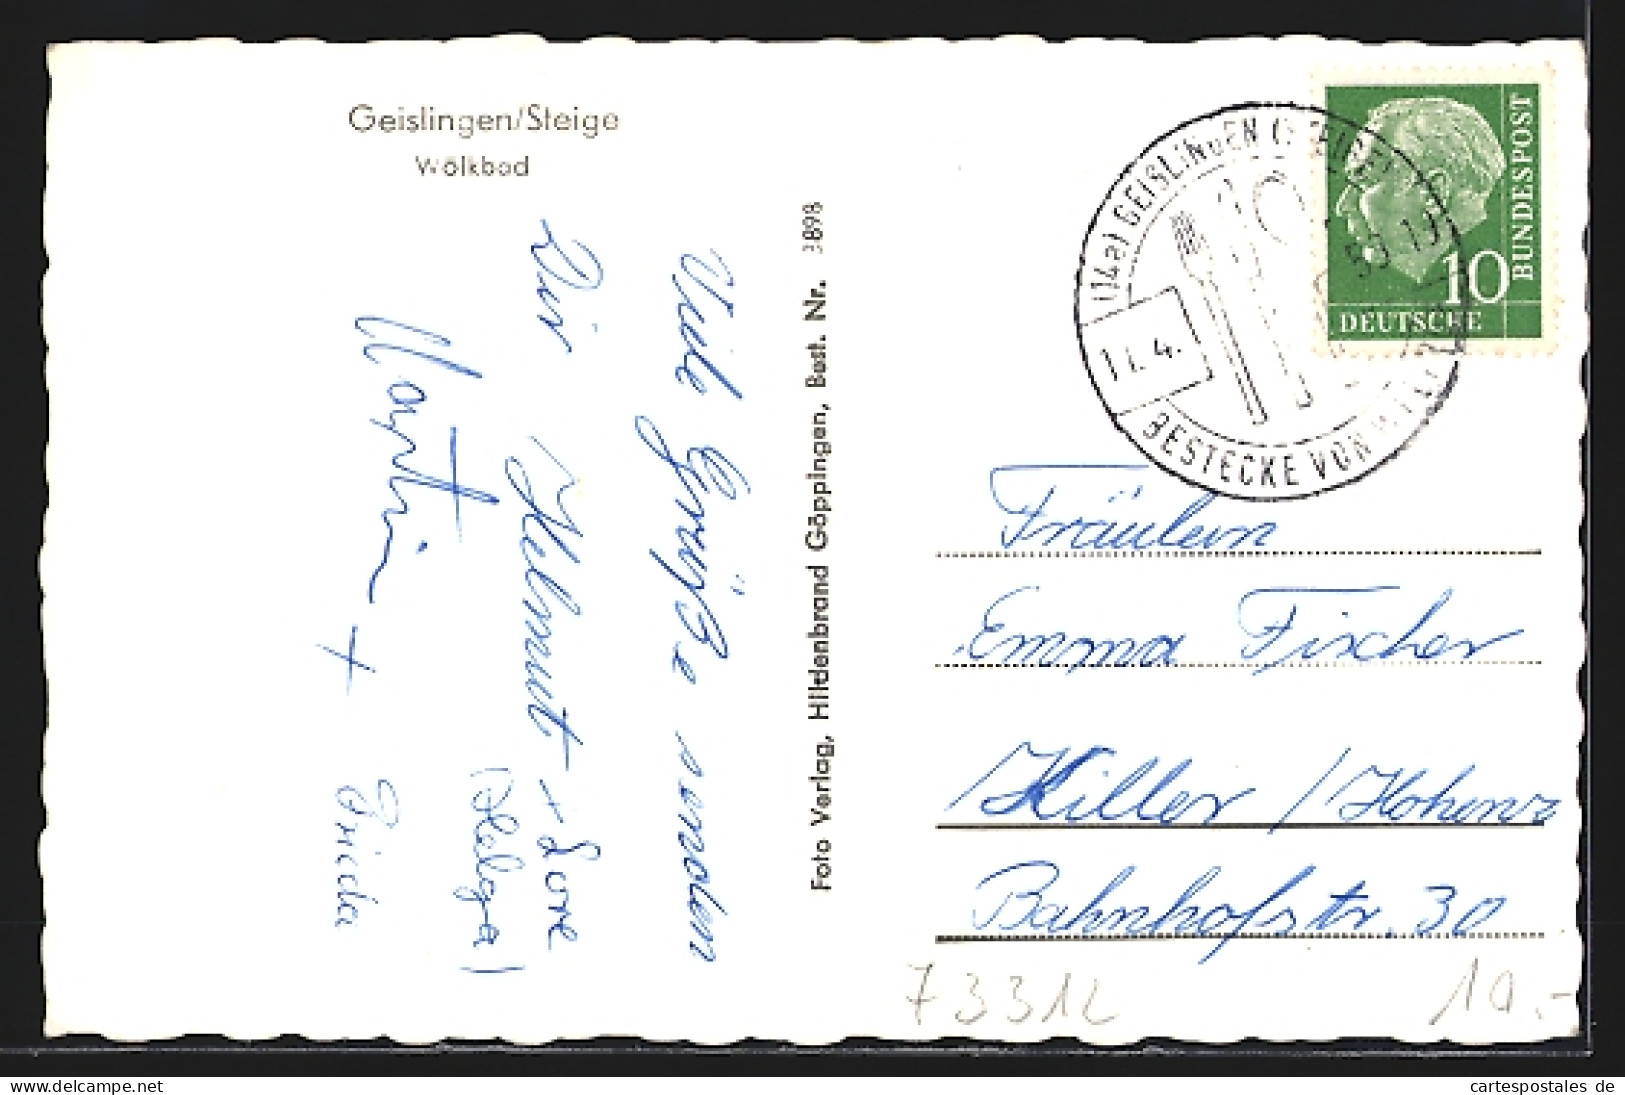 Geislingen/Steige
Wölkbad
Viele Grüße senden
Dir
Helmut + Lore
(Helga)
Martin + Frida
Foto Verlag, Hildenbrand Göppingen, Best. Nr. 3898
(14a) GEISLINGEN
11. 4.
BESTECKE VON
BUNDESPOST
10
DEUTSCHE
Fräulein
Emma Fischer
Killer / Hohenz
Bahnhofstr. 30
73312
10.-
www.delcampe.net
cartespostales de